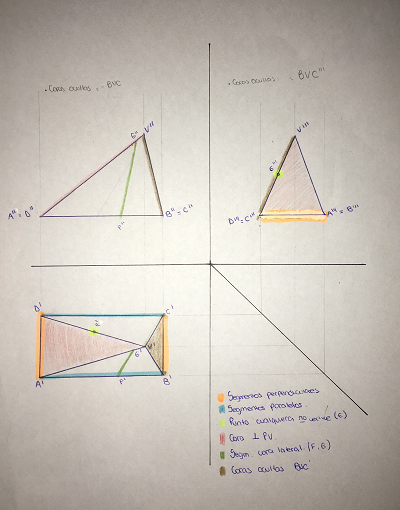 · Caras ocultas : - BVC
· Caras ocultas : BVC'''
G'' V''
V'''
G'''
A''≡D''
F''
B''≡C''
D'''≡C'''
A'''≡B'''
D'
C'
G' V'
A'
F'
B'
Segmentos perpendiculares
Segmentos paralelos
Punto cualquiera no vértice (E)
Cara ⊥ PV
Segm. cara lateral (F, G)
Caras ocultas BVC'